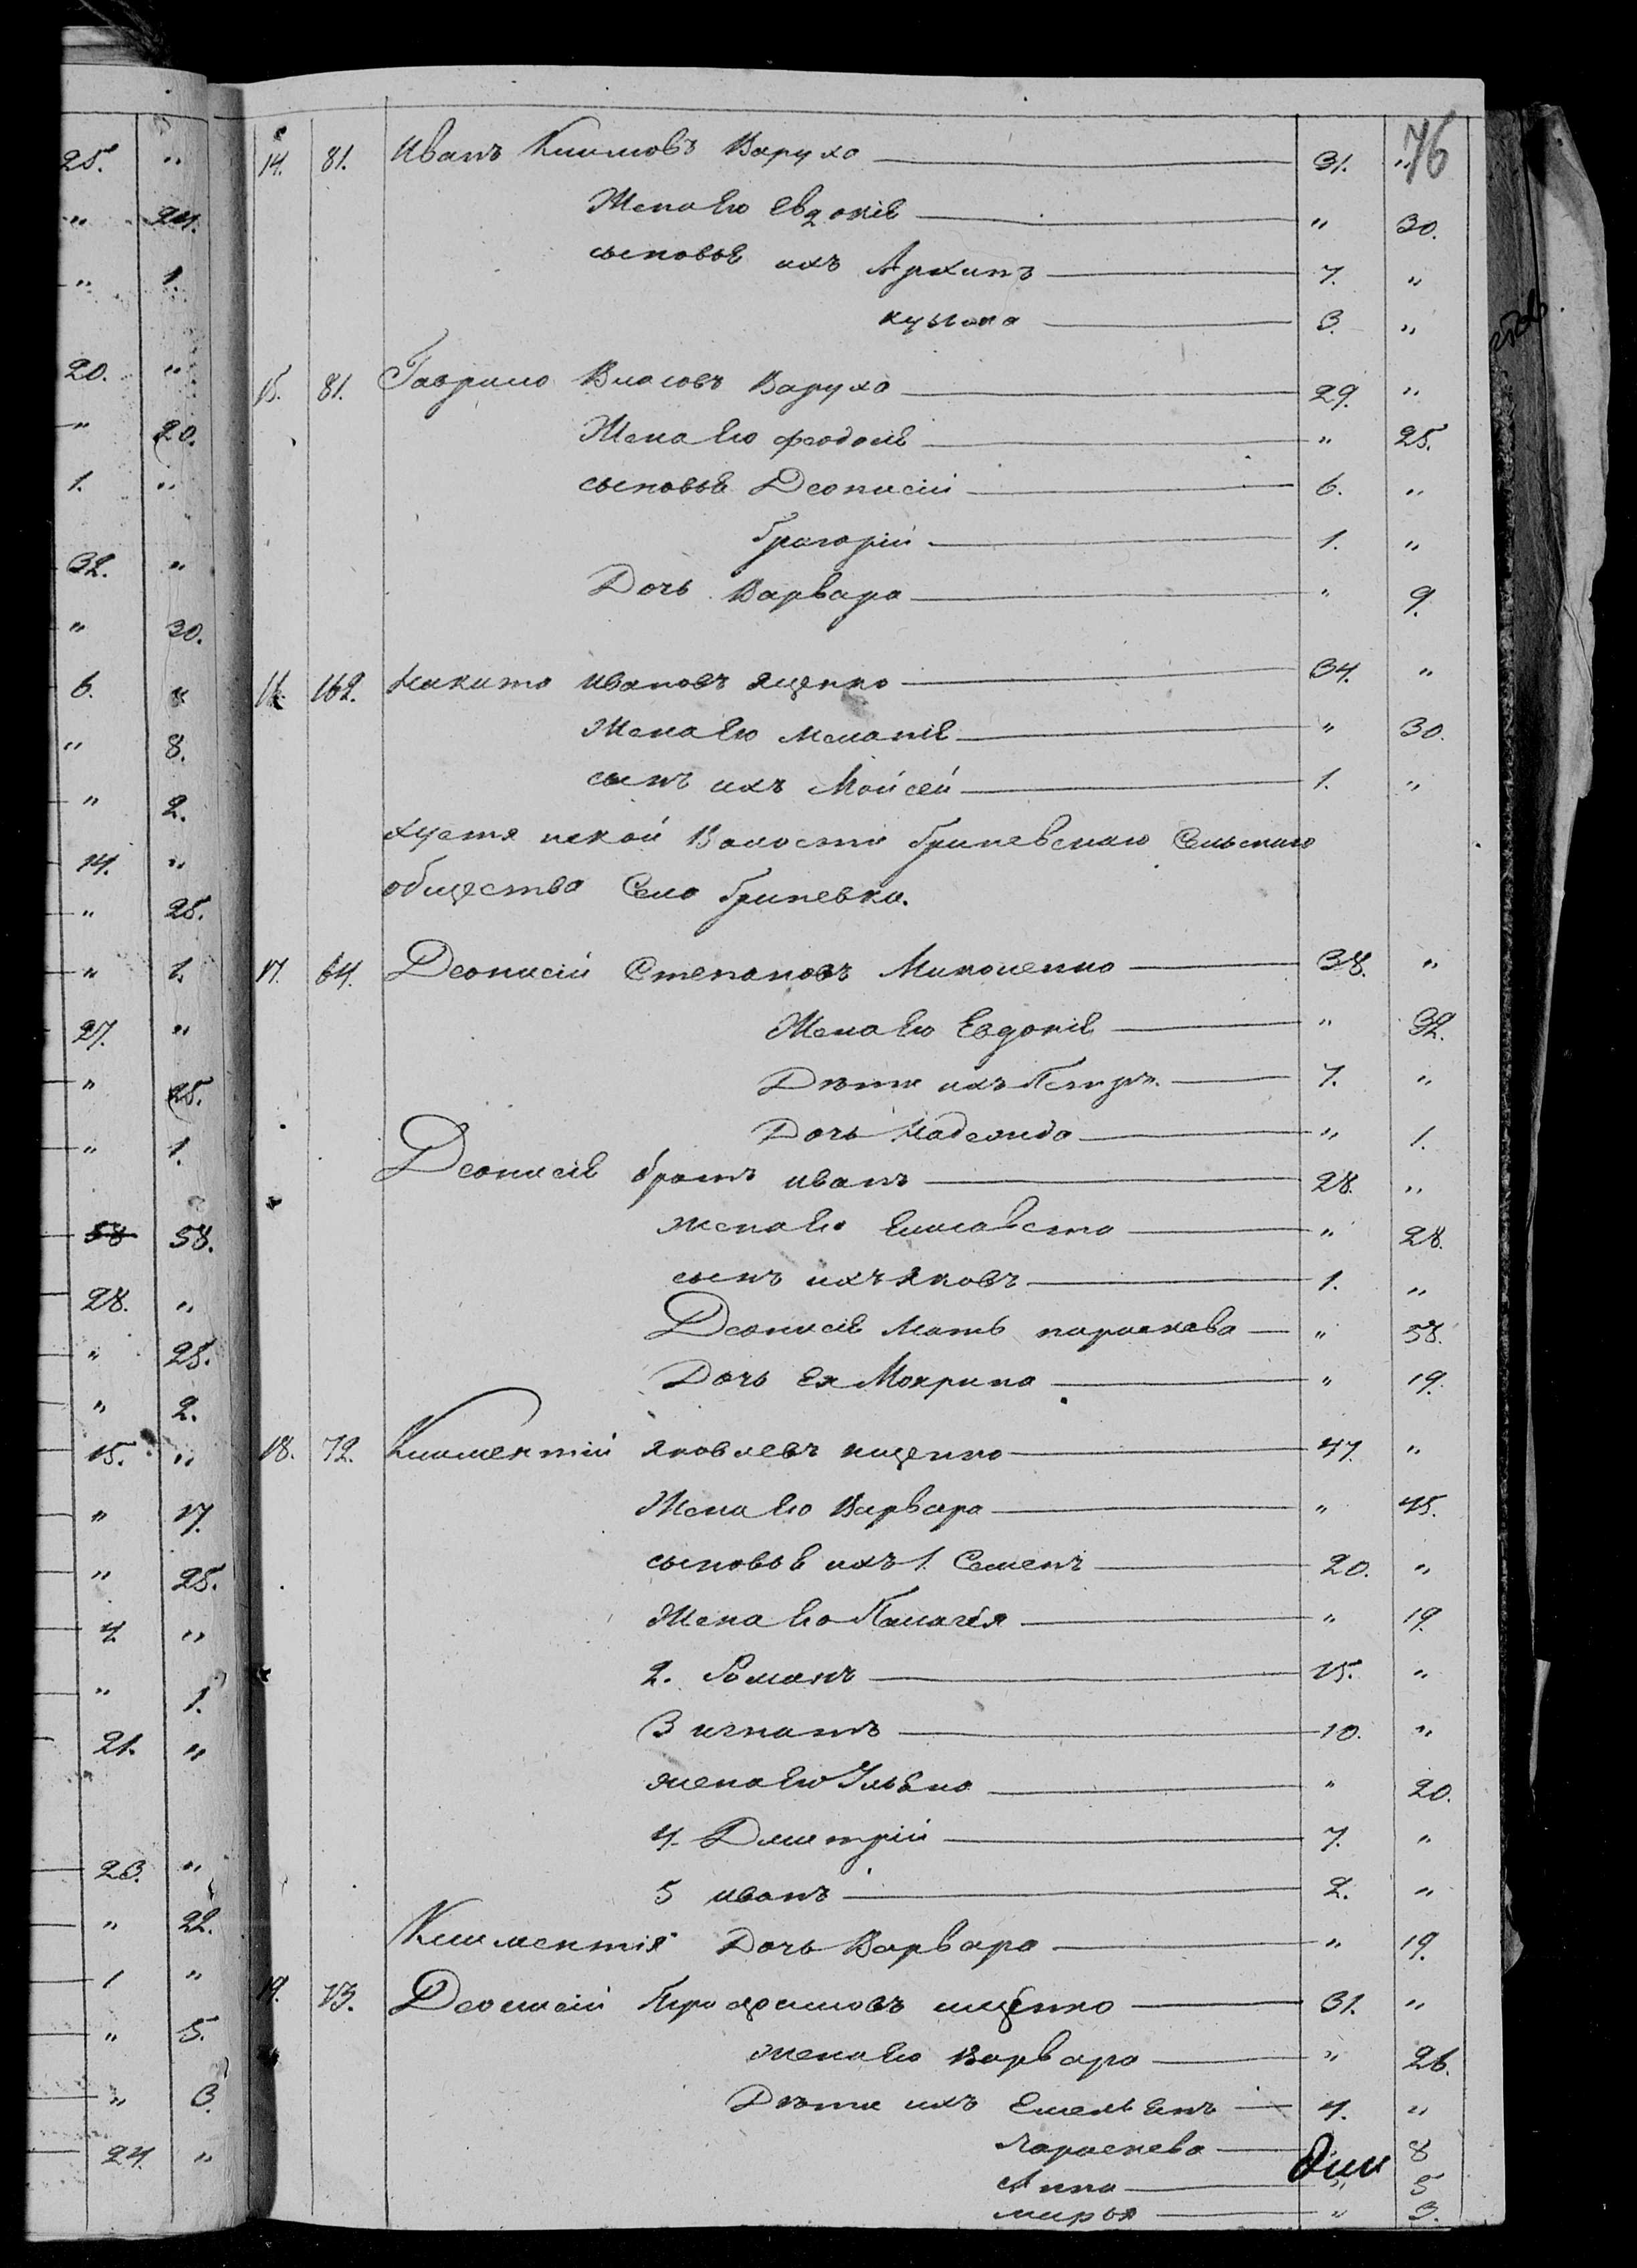 76
14. 81. Иванъ Климовъ Варуха 31. "
Жена его Евдокіѣ " 30.
сыновьѣ ихъ Архипъ 7. "
кузьма 3. "
15. 81. Гаврило Власовъ Варуха 29. "
Жена его феодосіѣ " 25.
сыновьѣ Деонисій 6. "
Григорій 1. "
Дочь Варвара " 9.
16. 162. Никита Ивановъ ященко 34. "
Жена его меланіѣ " 30.
сынъ ихъ Мойсей 1. "
Волости Гриневскаго Сельскаго
общества Село Гриневка.
17. 64. Деонисій Степановъ Миколенко 38. "
Жена его Евдокіѣ " 32.
Дѣти ихъ Петръ. 7. "
Дочь Надежида " 1.
Деонисіѣ братъ иванъ 28. "
жена его Елисавета " 28.
сынъ ихъ яковъ 1. "
Деонисіѣ мать параскева " 58.
Дочь ея Мокрина " 19.
18. 72. Климентій яковлевъ ищенко 47. "
Жена его Варвара " 45.
сыновьѣ ихъ 1. Семенъ 20. "
Жена его Палагія " 19.
2. Романъ 15. "
3 игнатъ 10. "
жена его Ульѣна " 20.
4. Дмитрій 7. "
5 иванъ 2. "
Климентія Дочь Варвара " 19.
19. 73. Деонисій Герасимовъ ищенко 31. "
жена его Варвара " 26.
Дѣти ихъ Емельѣнъ 4. "
Параскева " 8
Анна " 5
марья " 3.
25. "
" 24.
" 1.
20. "
" 20.
1. "
32. "
" 30.
6. "
" 8.
" 2.
14. "
" 25.
" 1.
27. "
" 25.
" 1.
58 58.
28. "
" 25.
" 2.
15. "
" 17.
" 25.
4. "
" 1.
21. "
23. "
" 22.
1 "
" 5.
" 3.
24. "